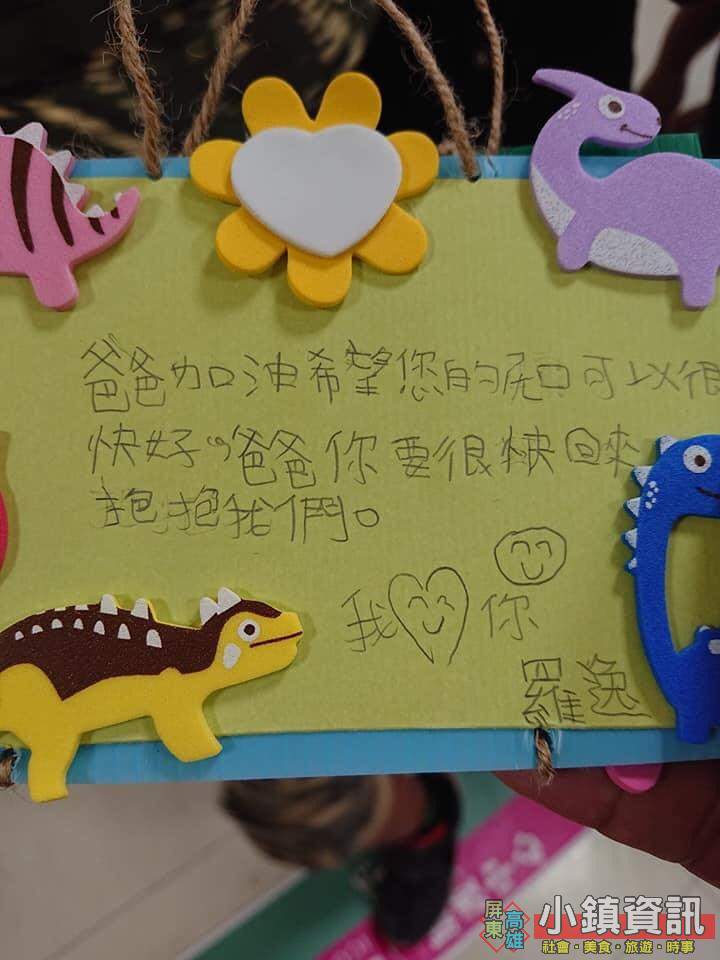 爸爸加油希望您的屁口可以很
快好,爸爸你要很快回來
抱抱我們。
我 你
羅逸
屏東
高雄
小鎮資訊
社會・美食・旅遊・時事